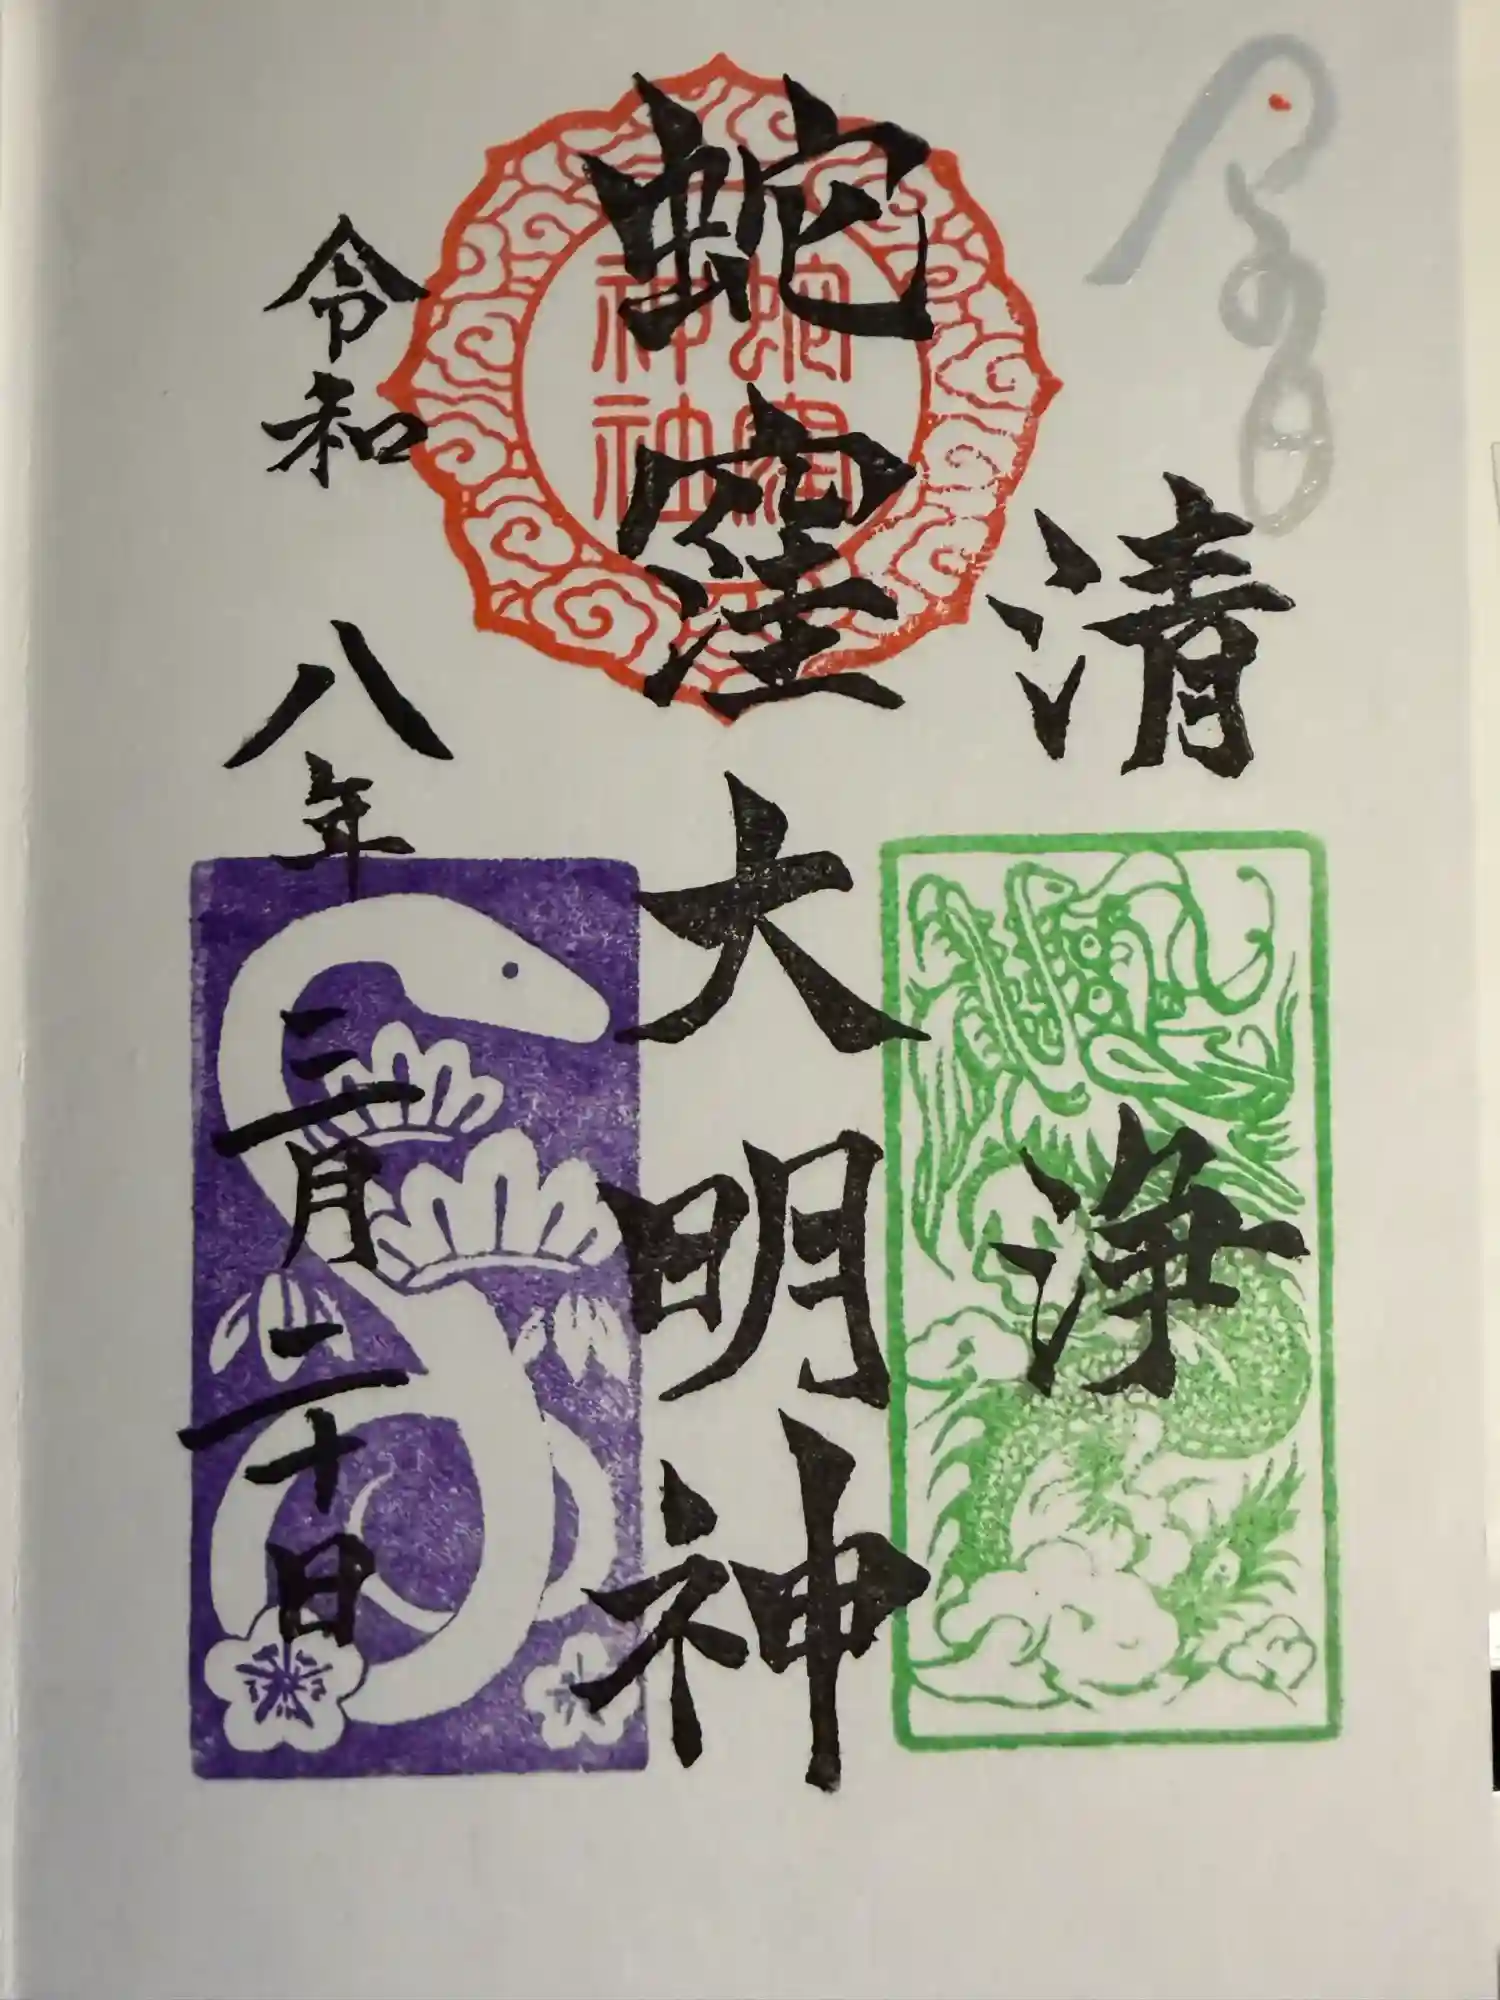 清浄
蛇窪大明神
蛇窪神社
令和八年三月二十日